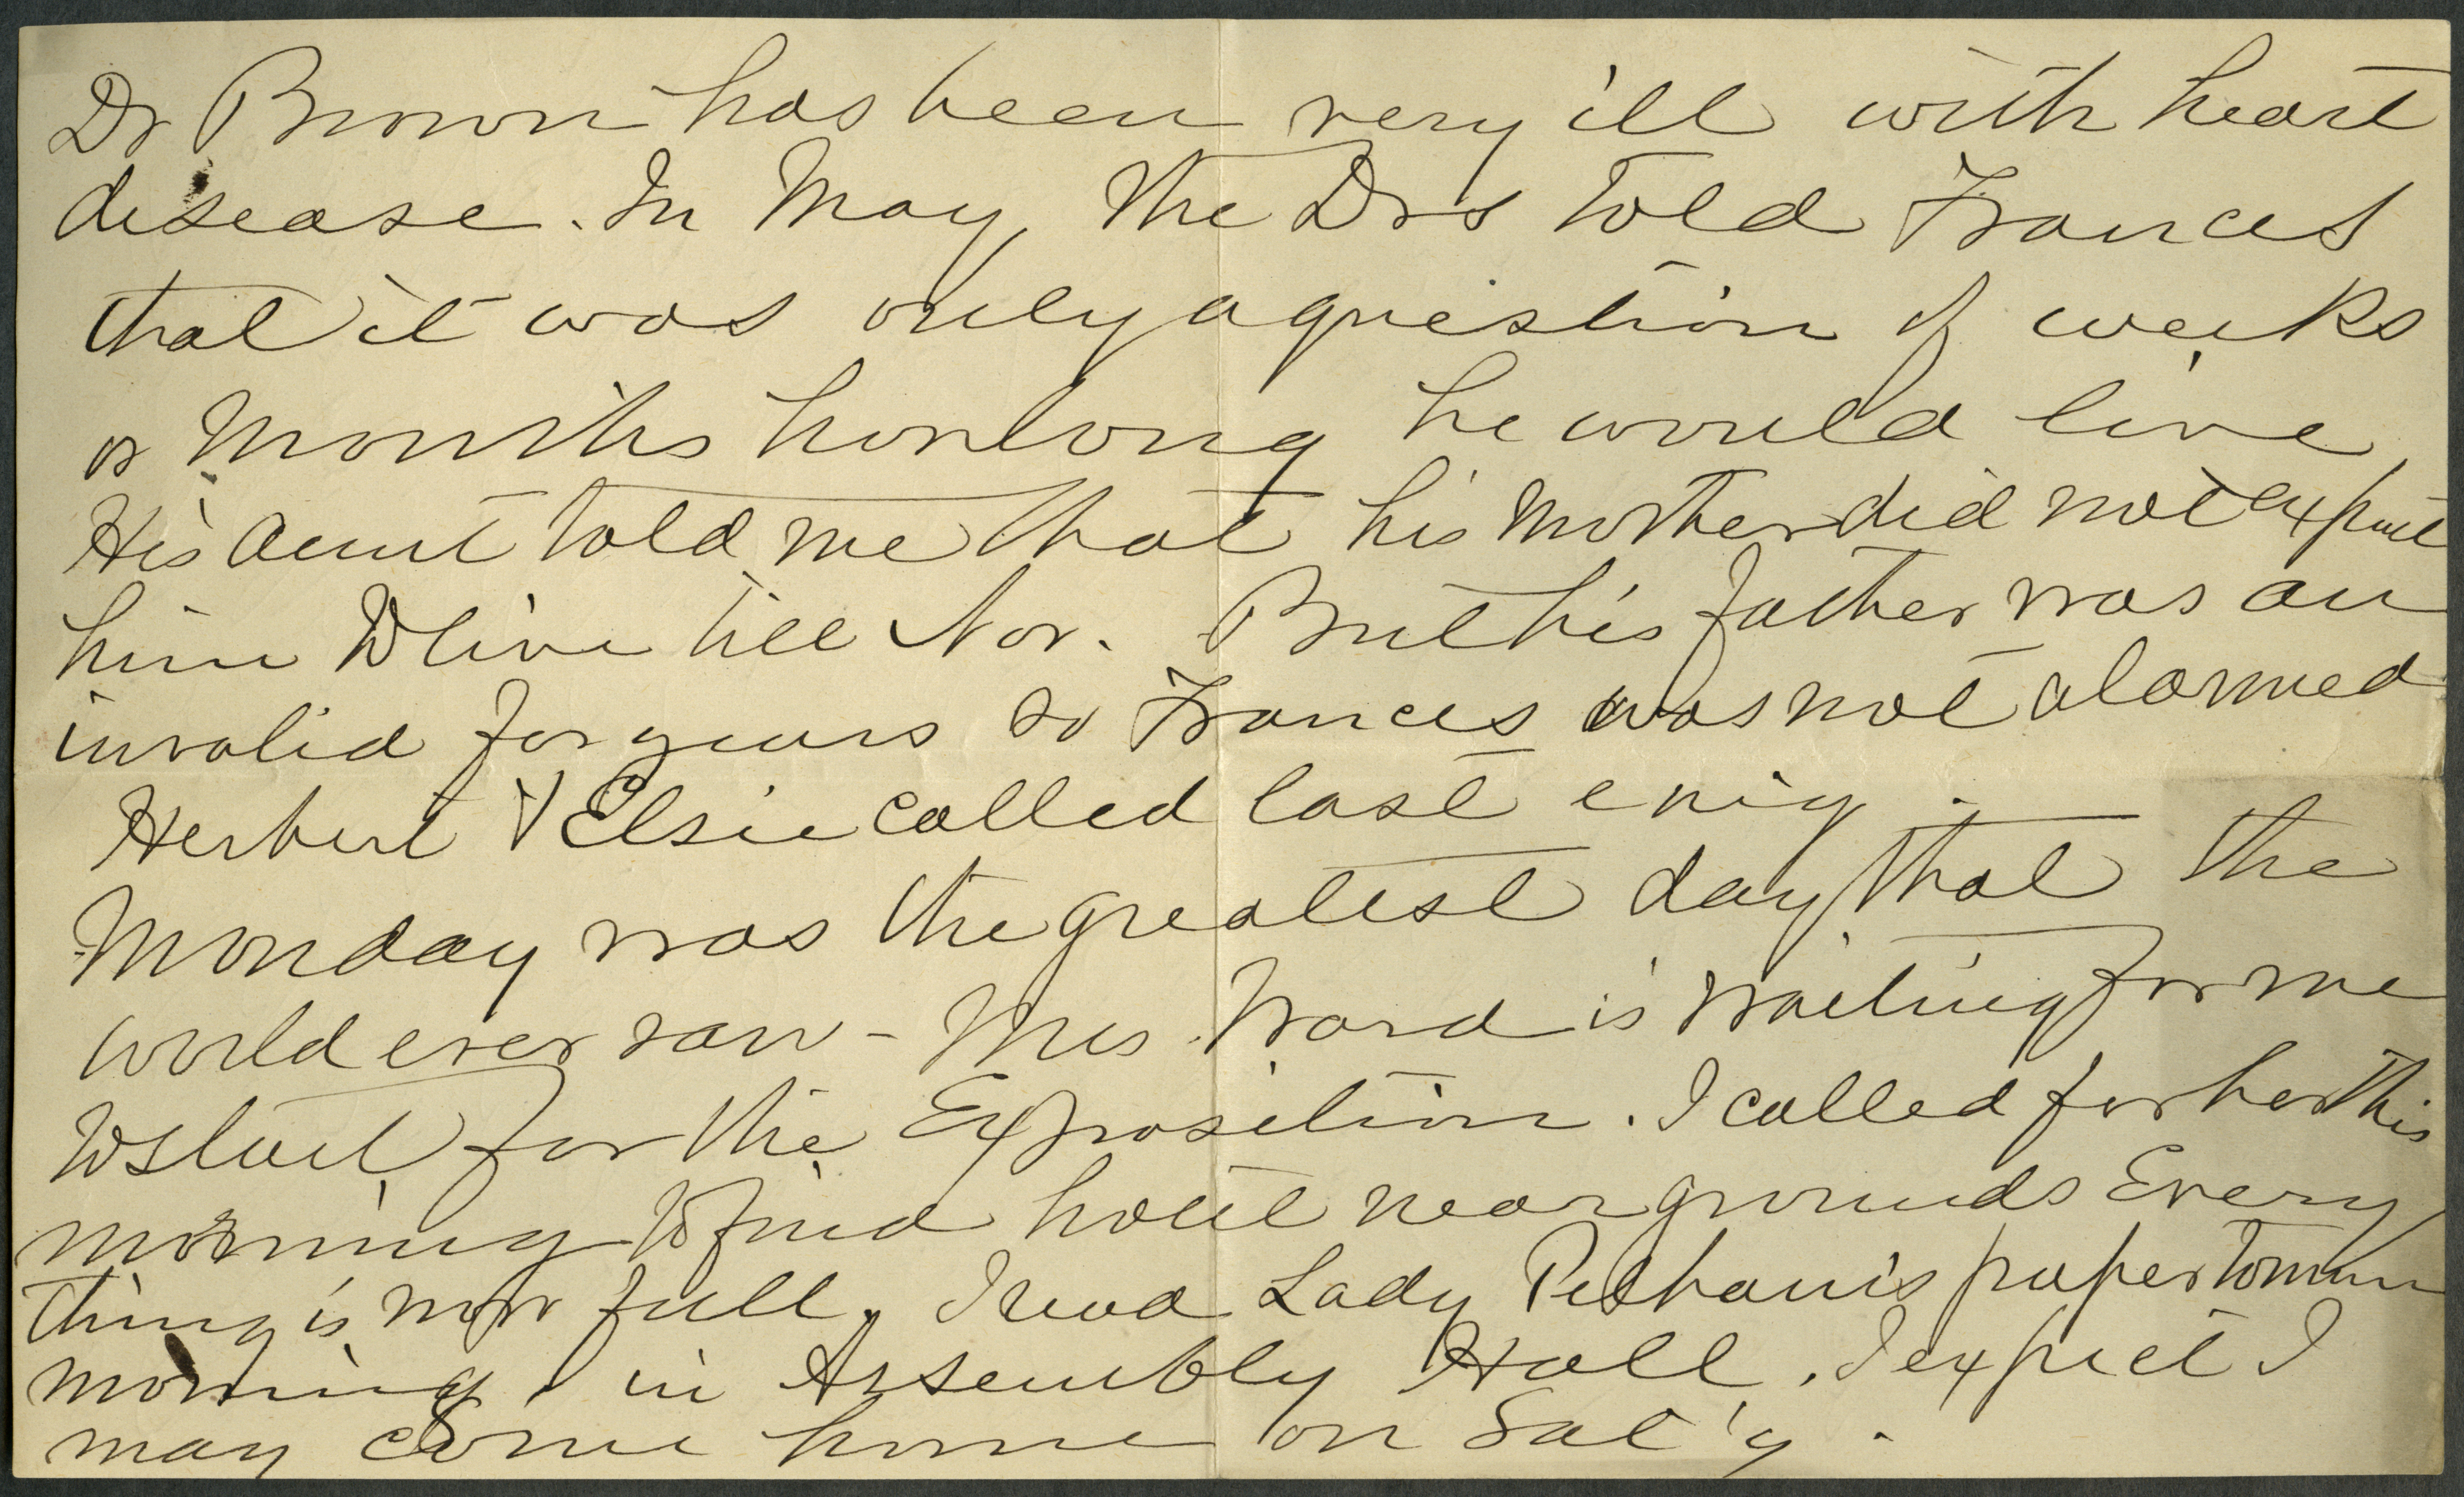 Dr Brown has been very ill with heart
disease. In May the Drs told Frances
that it was only a question of weeks
or months how long he would live
His Aunt told me that his Mother did not expect
him to live till Nov. But his father was an
invalid for years so Frances was not alarmed
Herbert & Elsie called last ev'ig.
Monday was the greatest day that the
world ever saw - Mrs. Ward is waiting for me
to start for the Exposition. I called for her this
morning to find hotel near grounds Every
thing is now full. I read Lady Pelham's paper tomorrow
morning in Assembly Hall. I expect I
may come home on Sat'y.